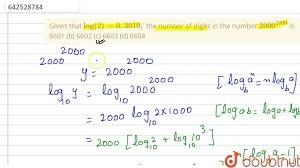 642528784
Given that log(2) = 0.3010, the number of digits in the number 2000^2000 is
6601 (b) 6602 (c) 6603 (d) 6604
2000^2000
y = 2000^2000
log_10 y = log_10 2000^2000 [log_b a^n = n log_b a]
= 2000 log_10 2×1000 [log ab = log a + log
= 2000 [log_10 2 + log_10 10^3] [log_a a = 1]
doubtnut